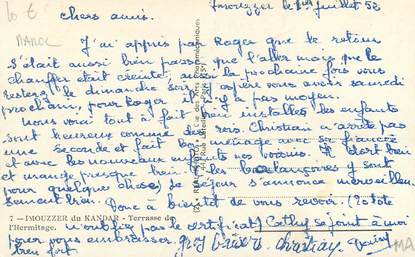 Imouzzer le 1er juillet 52
chers amis.
MAROC
J'ai appris par Roger que le retour
s'était aussi bien passé que l'aller mais que le
chauffeur était éreinté, aussi la prochaine fois vous
resterez le dimanche soir. On espère vous avoir samedi
prochain, pour Roger il n'y a pas moyen.
Nous voici tout à fait bien installés, les enfants
sont heureux comme des rois. Christian n'arrête pas
une seconde et fait bon ménage avec sa
et avec les nouveaux enfants nos voisins. Il dort bien
et mange presque bien. les balançoires y sont
pour quelque chose) le séjour s'annonce merveilleu
sement bien. Donc à bientôt de vous revoir.
7 — IMOUZZER du KANDAR - Terrasse de
l'Hermitage.
n'oubliez pas le certificat) Cathy se joint à moi
pour vous embrasser gros baisers Christian
bien fort
MA